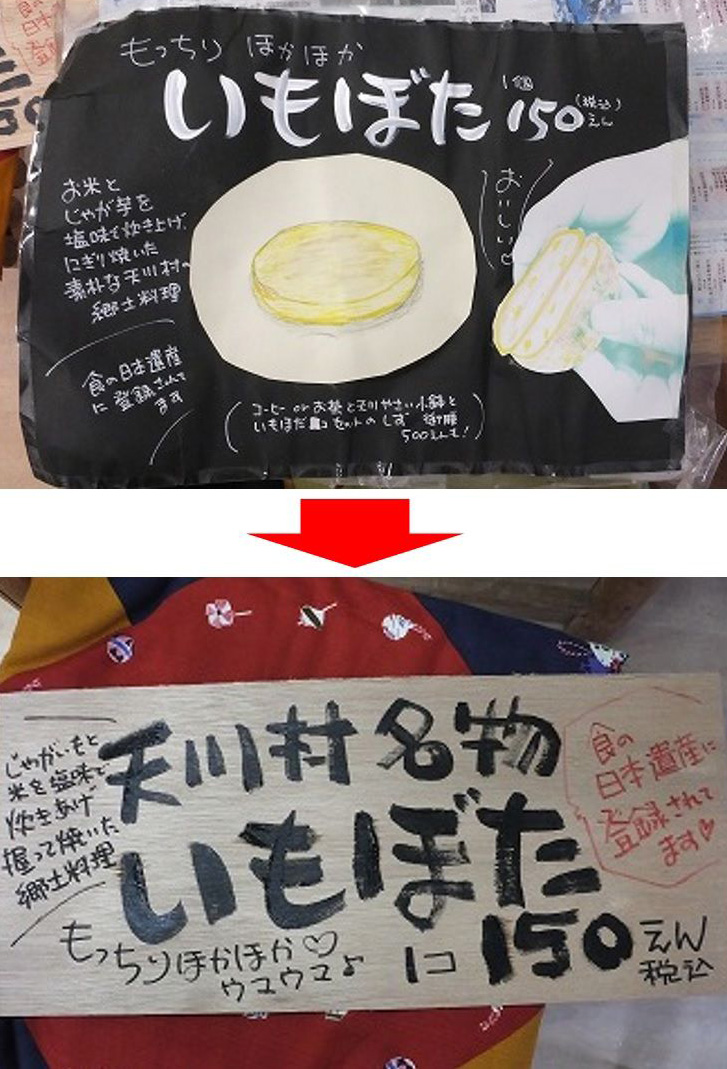 もっちり ほかほか
いもぼた
1個
150
(税込)
えん
お米と
じゃが芋を
塩味で炊き上げ、
にぎり焼いた
素朴な天川村の
郷土料理
おいしい♡
食の日本遺産
に登録されて
ます
コーヒー or お茶と天川やさい小鉢と
いもぼた
500えんも!
天川村名物
いもぼた
じゃがいもと
米を塩味で
炊きあげ
握って焼いた
郷土料理
食の
日本遺産に
登録されて
ます♡
もっちりほかほか♡
ウマウマ♪
1コ
150
えん
税込